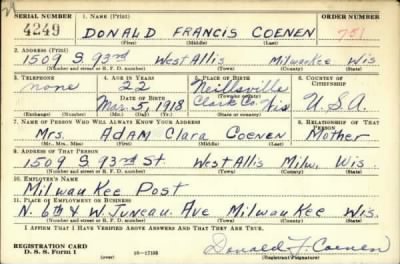 SERIAL NUMBER 1. NAME (Print) ORDER NUMBER
4249 DONALD FRANCIS COENEN 751
(First) (Middle) (Last)
2. ADDRESS (Print)
1509 S. 93rd West Allis Milwaukee Wis
(Number and street or R. F. D. number) (Town) (County) (State)
3. TELEPHONE 4. AGE IN YEARS 5. PLACE OF BIRTH 6. COUNTRY OF CITIZENSHIP
none 22 Neillsville
DATE OF BIRTH
Mar. 5, 1918 Clark Co. Wis U.S.A.
(Exchange) (Number) (Mo.) (Day) (Yr.) (State or country)
7. NAME OF PERSON WHO WILL ALWAYS KNOW YOUR ADDRESS 8. RELATIONSHIP OF THAT PERSON
Mrs. ADAM Clara COENEN Mother
(Mr., Mrs., Miss) (First) (Middle) (Last)
9. ADDRESS OF THAT PERSON
1509 S 93rd St. West Allis Milw. Wis.
(Number and street or R. F. D. number) (Town) (County) (State)
10. EMPLOYER'S NAME
Milwaukee Post
11. PLACE OF EMPLOYMENT OR BUSINESS
N. 6th & W. Juneau. Ave Milwaukee Wis.
(Number and street or R. F. D. number) (Town) (County) (State)
I AFFIRM THAT I HAVE VERIFIED ABOVE ANSWERS AND THAT THEY ARE TRUE.
REGISTRATION CARD
D. S. S. Form 1 (over) 16—17105
Donald F. Coenen
(Registrant's signature)